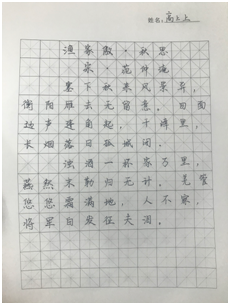 姓名:高上上
渔家傲·秋思
宋·范仲淹
塞下秋来风景异,
衡阳雁去无留意。四面
边声连角起,千嶂里,
长烟落日孤城闭。
浊酒一杯家万里,
燕然未勒归无计,羌管
悠悠霜满地,人不寐,
将军白发征夫泪。